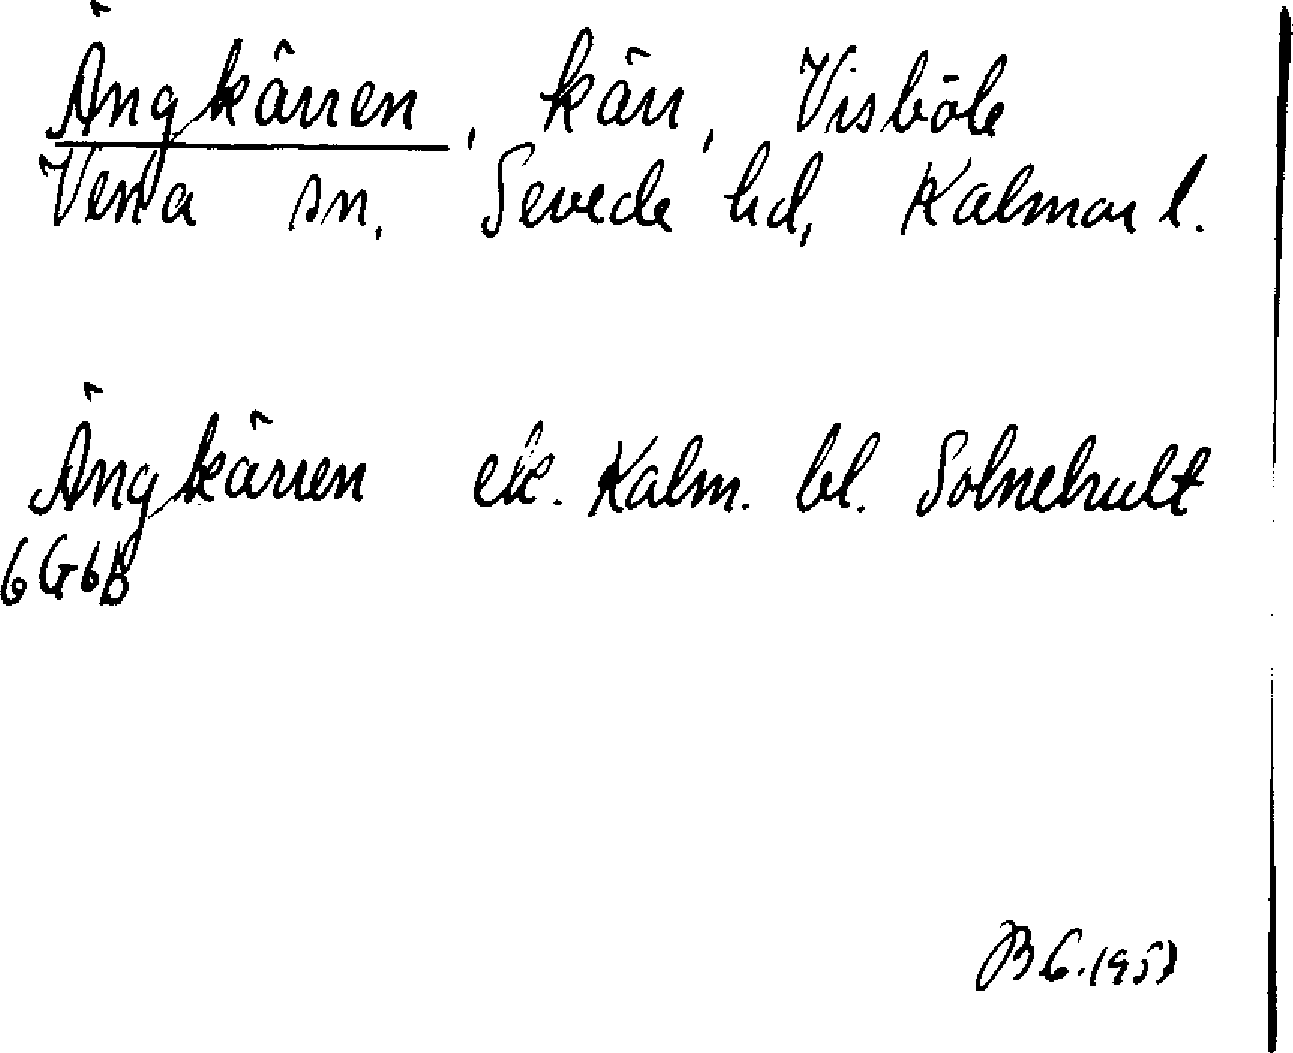 Ängkärren, kärr, Visböle
Vena sn, Sevede hd, Kalmar l.
Ängkärren ek. Kalm. bl. Solnehult
6G6b